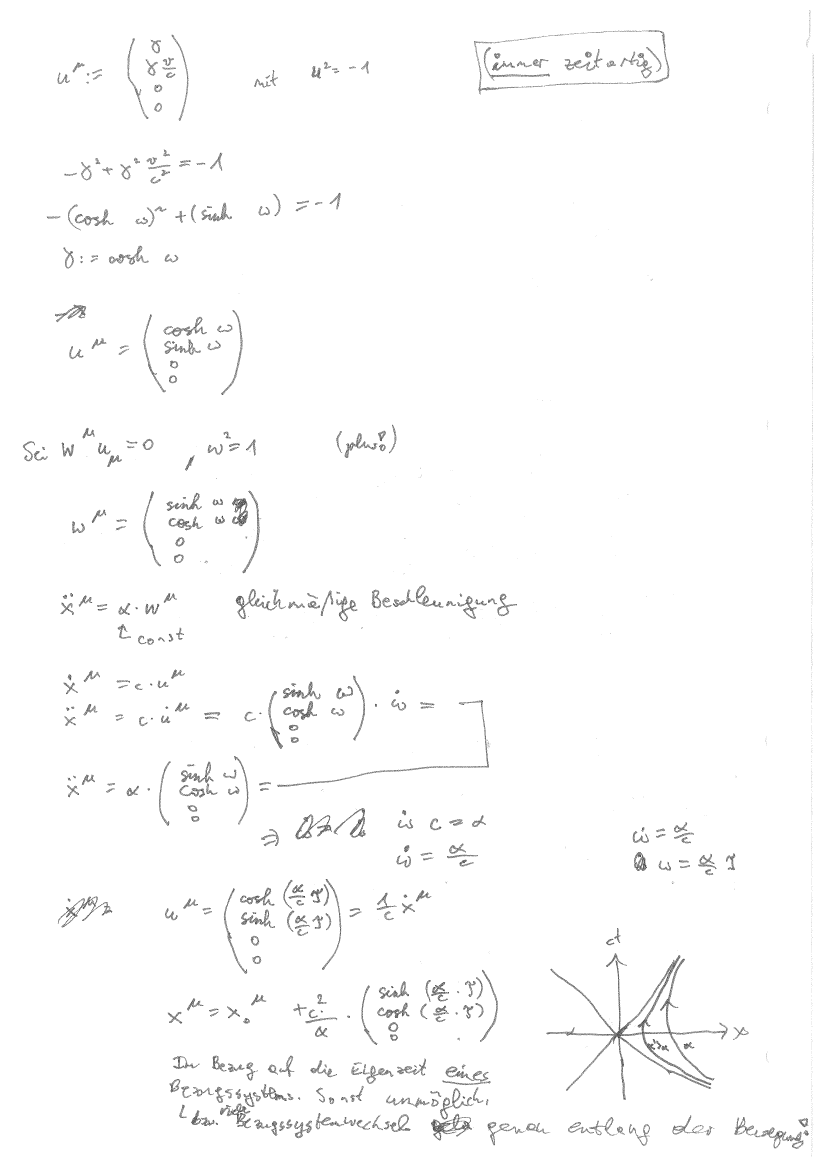 u^μ := (γ, γ v/c, 0, 0) mit u² = -1
(immer zeitartig)
-γ² + γ² v²/c² = -1
-(cosh ω)² + (sinh ω) = -1
γ := cosh ω
u^μ = (cosh ω, sinh ω, 0, 0)
Sei w^μ u_μ = 0 , w² = 1 (plus!)
w^μ = (sinh ω, cosh ω, 0, 0)
ẍ^μ = α · w^μ gleichmäßige Beschleunigung
↑ const
ẋ^μ = c · u^μ
ẍ^μ = c · u̇^μ = c · (sinh ω, cosh ω, 0, 0) · ω̇ =
ẍ^μ = α · (sinh ω, cosh ω, 0, 0) =
⇒ ω̇ c = α
ω̇ = α/c
ω̇ = α/c
ω = α/c τ
u^μ = (cosh (α/c τ), sinh (α/c τ), 0, 0) = 1/c ẋ^μ
x^μ = x₀^μ + c²/α · (sinh (α/c · τ), cosh (α/c · τ), 0, 0)
ct
x
α'>α
α
In Bezug auf die Eigenzeit eines
Bezugssystems. Sonst unmöglich,
bzw. viele Bezugssystemwechsel genau entlang der Bewegung!